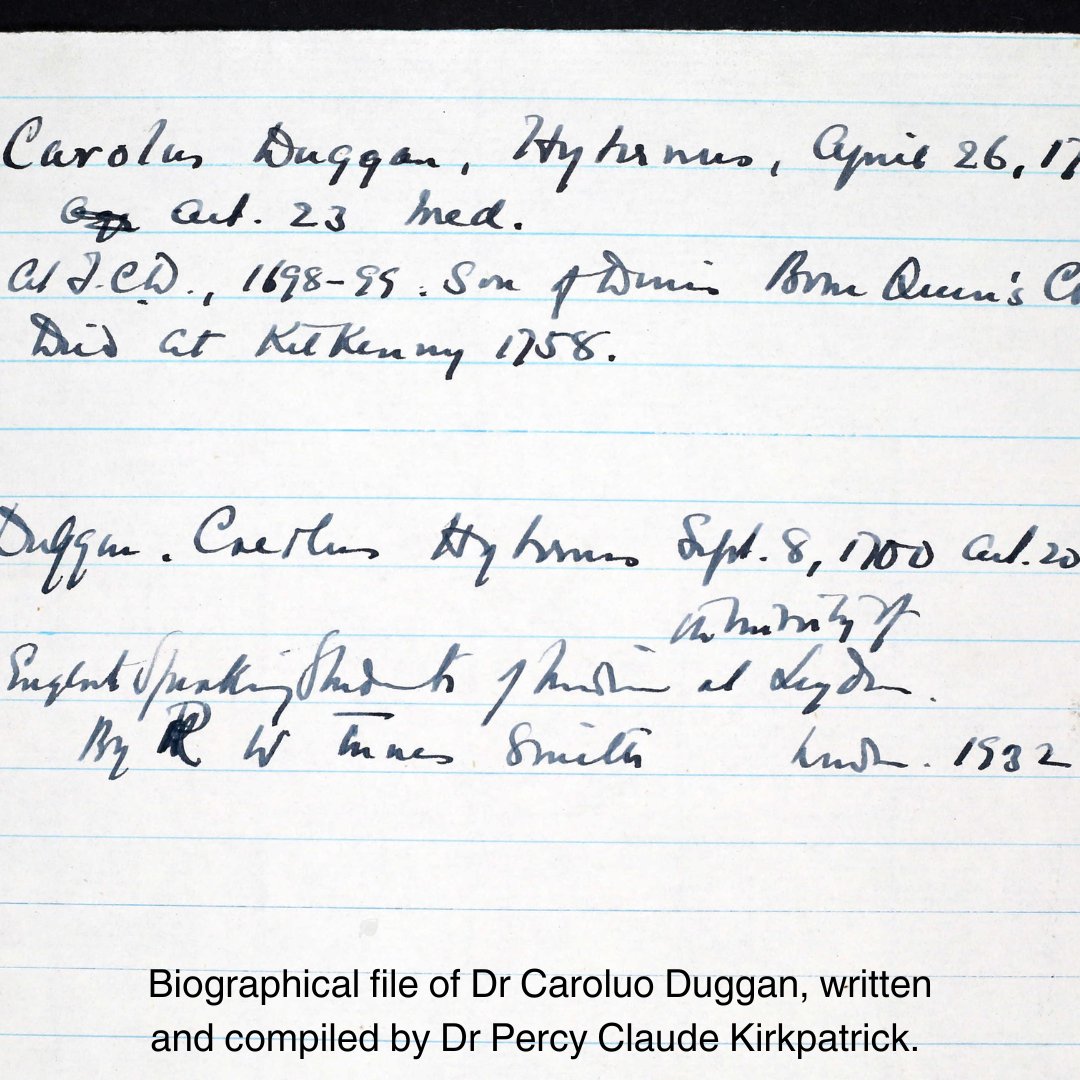 Carolus Duggan, Hybernus, April 26, 17
aet. 23 Med.
at T.C.D., 1698-99. Son of Dinis Born Queen's Co
Died at Kilkenny 1758.
Duggan. Carolus Hybernus Sept. 8, 1700 aet. 20
University of
English Speaking Students of Medicine at Leyden.
By R W Innes Smith Lond. 1932
Biographical file of Dr Caroluo Duggan, written
and compiled by Dr Percy Claude Kirkpatrick.